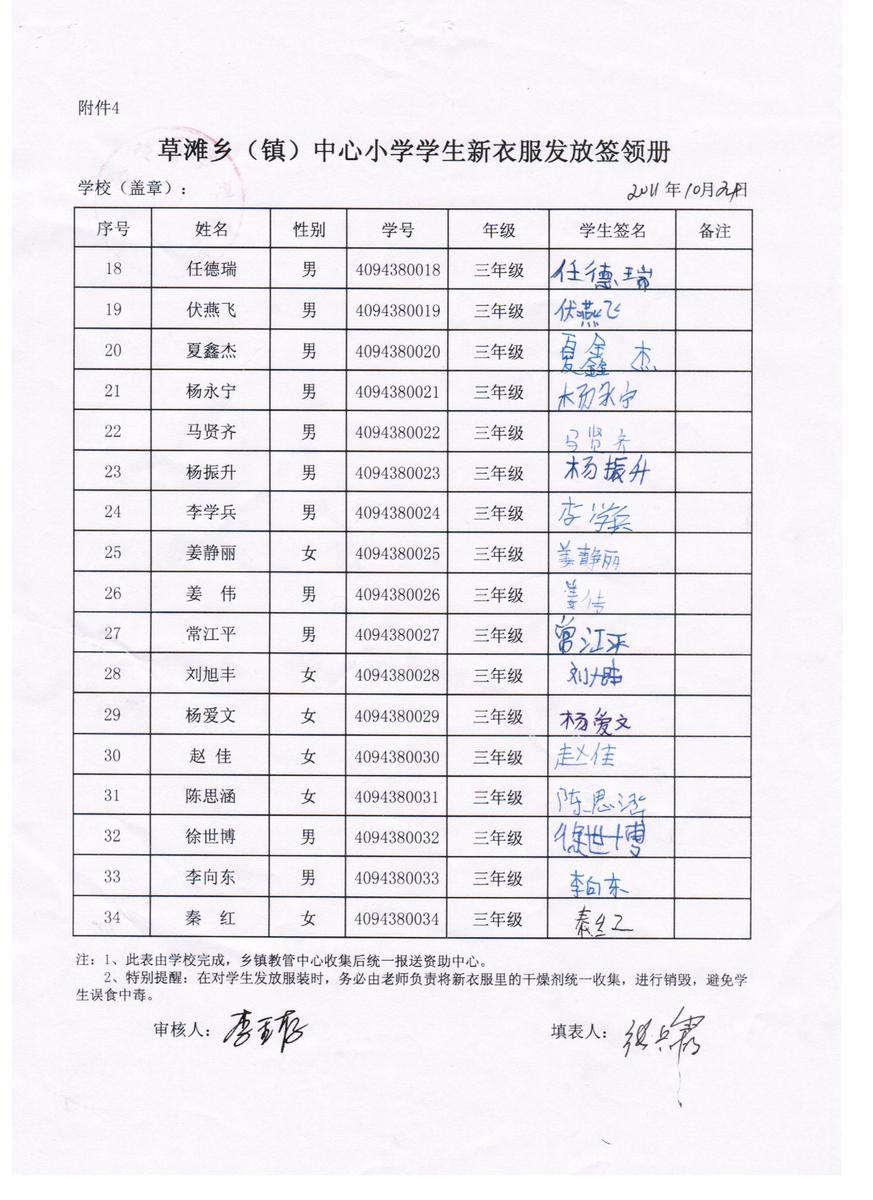 附件4
草滩乡（镇）中心小学学生新衣服发放签领册
学校（盖章）： 2011年10月21日
序号 姓名 性别 学号 年级 学生签名 备注
18 任德瑞 男 4094380018 三年级 任德瑞
19 伏燕飞 男 4094380019 三年级 伏燕飞
20 夏鑫杰 男 4094380020 三年级 夏鑫杰
21 杨永宁 男 4094380021 三年级 杨永宁
22 马贤齐 男 4094380022 三年级 马贤齐
23 杨振升 男 4094380023 三年级 杨振升
24 李学兵 男 4094380024 三年级 李学兵
25 姜静丽 女 4094380025 三年级 姜静丽
26 姜 伟 男 4094380026 三年级 姜伟
27 常江平 男 4094380027 三年级 常江平
28 刘旭丰 女 4094380028 三年级 刘旭丰
29 杨爱文 女 4094380029 三年级 杨爱文
30 赵 佳 女 4094380030 三年级 赵佳
31 陈思涵 女 4094380031 三年级 陈思涵
32 徐世博 男 4094380032 三年级 徐世博
33 李向东 男 4094380033 三年级 李向东
34 秦 红 女 4094380034 三年级 秦红
注：1、此表由学校完成，乡镇教管中心收集后统一报送资助中心。
2、特别提醒：在对学生发放服装时，务必由老师负责将新衣服里的干燥剂统一收集，进行销毁，避免学
生误食中毒。
审核人： 填表人：